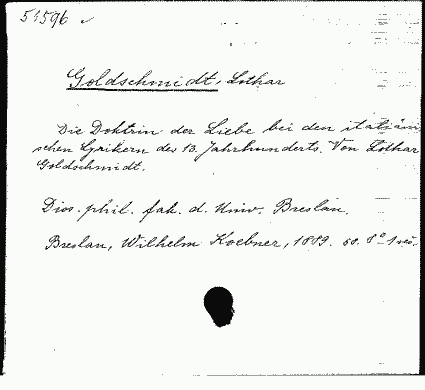 54596
Goldschmidt, Lothar
Die Doktrin der Liebe bei den italieni
schen Lyrikern des 13. Jahrhunderts. Von Lothar
Goldschmidt.
Diss. phil. fak. d. Univ. Breslau.
Breslau, Wilhelm Koebner, 1889. 60. 8°